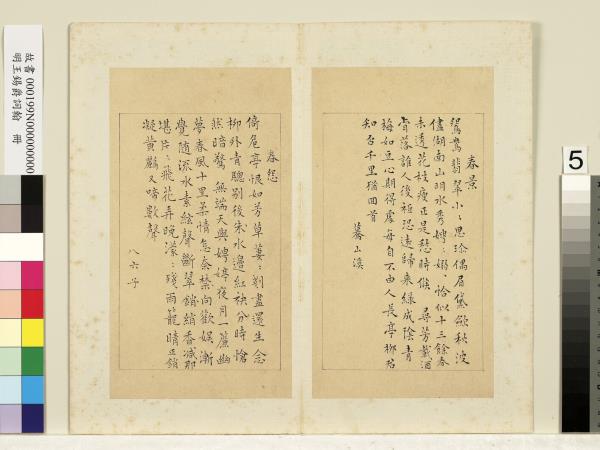 春景
鴛鴦翡翠小〻思珍偶眉黛斂秋波
儘湖南山明水秀娉〻嫋〻恰似十三餘春
未透花枝瘦正是愁時候 尋芳載酒
肯落誰人後秪恐遠歸來綠成陰青
梅如豆心期得處每自不由人長亭柳君
知否千里猶回首
驀山溪
春怨
倚危亭恨如芳草萋〻剗盡還生念
柳外青驄別後朱水邊紅袂分時愴
然暗驚 無端天與娉婷夜月一簾幽
夢春風十里柔情怎奈禁向歡娛漸
覺隨流水素絃聲斷翠銷綃香減那
堪片〻飛花弄晚濛〻殘雨籠晴正銷
凝黃鸝又啼數聲
八六子
5